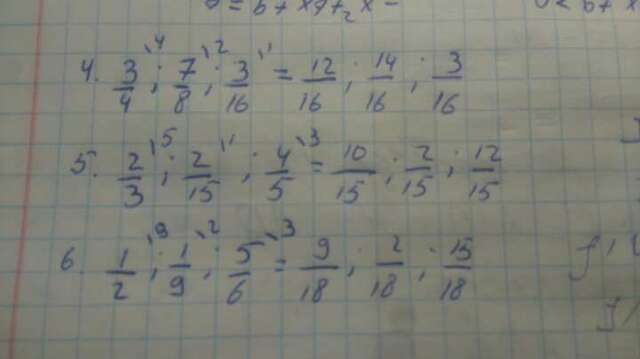 4. 3/4 ^4 ; 7/8 ^2 ; 3/16 ^1 = 12/16 ; 14/16 ; 3/16
5. 2/3 ^5 ; 2/15 ^1 ; 4/5 ^3 = 10/15 ; 2/15 ; 12/15
6. 1/2 ^9 ; 1/9 ^2 ; 5/6 ^3 = 9/18 ; 2/18 ; 15/18